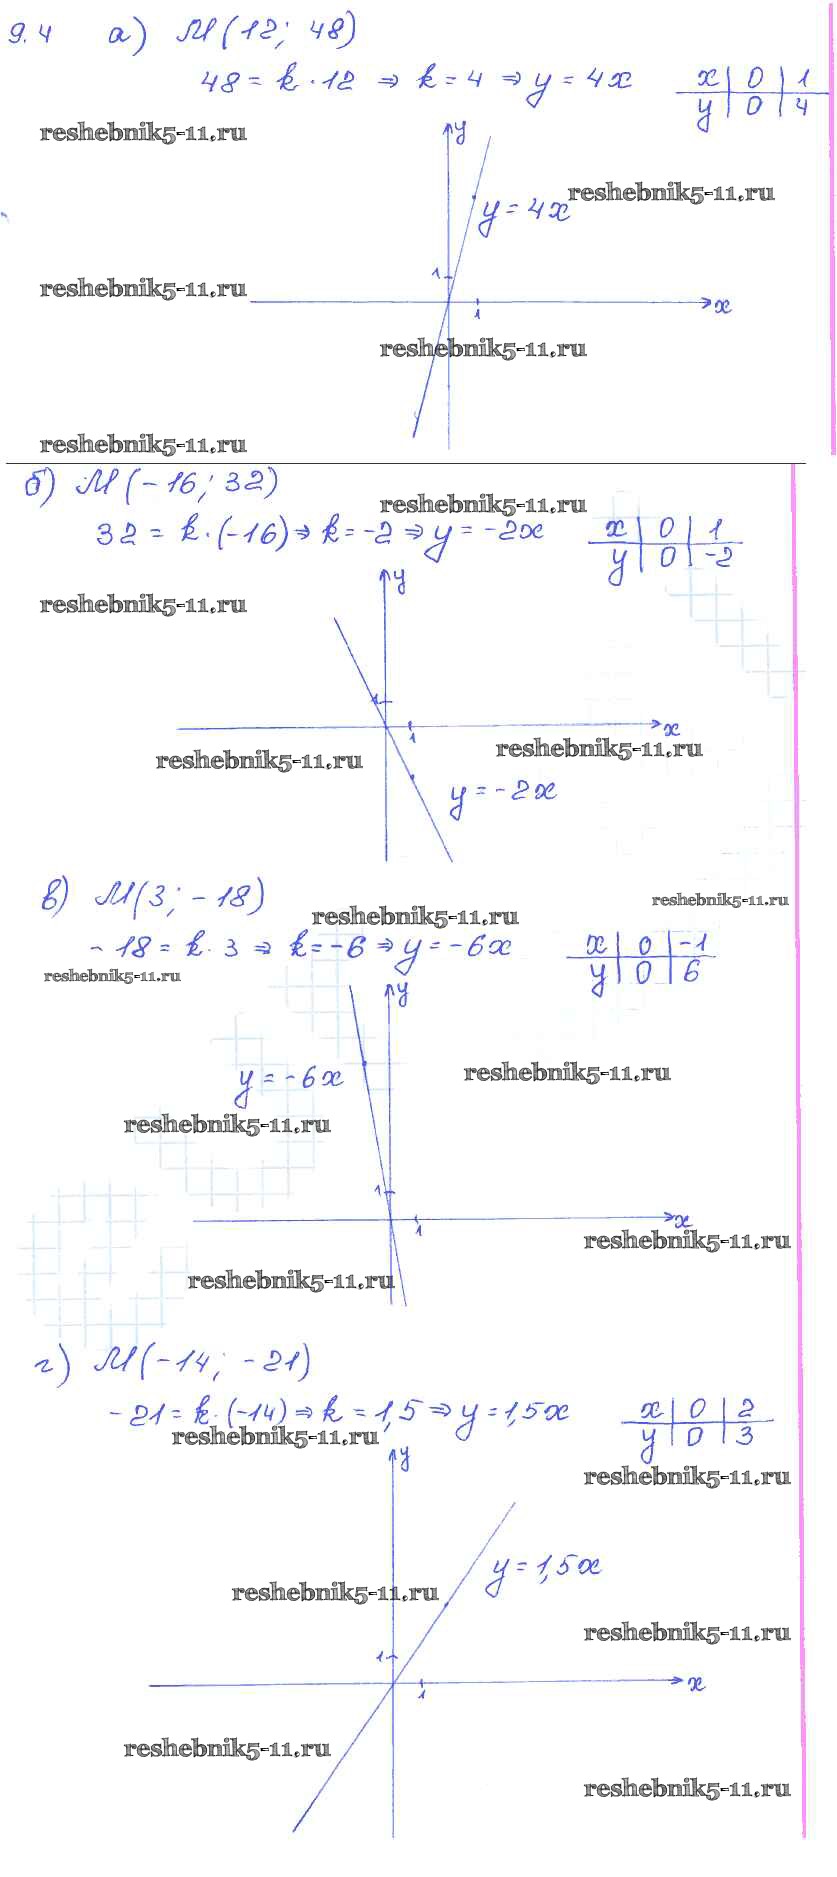 9.4 а) M(12; 48)
48 = k · 12 ⇒ k = 4 ⇒ y = 4x
x | 0 | 1
y | 0 | 4
reshebnik5-11.ru
y
reshebnik5-11.ru
y = 4x
1
reshebnik5-11.ru
x
1
reshebnik5-11.ru
reshebnik5-11.ru
б) M(-16; 32)
reshebnik5-11.ru
32 = k · (-16) ⇒ k = -2 ⇒ y = -2x
x | 0 | 1
y | 0 | -2
y
reshebnik5-11.ru
1
x
1
reshebnik5-11.ru
reshebnik5-11.ru
y = -2x
в) M(3; -18)
reshebnik5-11.ru
reshebnik5-11.ru
-18 = k · 3 ⇒ k = -6 ⇒ y = -6x
x | 0 | -1
y | 0 | 6
reshebnik5-11.ru
y
y = -6x
reshebnik5-11.ru
reshebnik5-11.ru
1
x
1
reshebnik5-11.ru
reshebnik5-11.ru
г) M(-14; -21)
-21 = k · (-14) ⇒ k = 1,5 ⇒ y = 1,5x
x | 0 | 2
y | 0 | 3
reshebnik5-11.ru
y
reshebnik5-11.ru
y = 1,5x
reshebnik5-11.ru
reshebnik5-11.ru
1
x
1
reshebnik5-11.ru
reshebnik5-11.ru